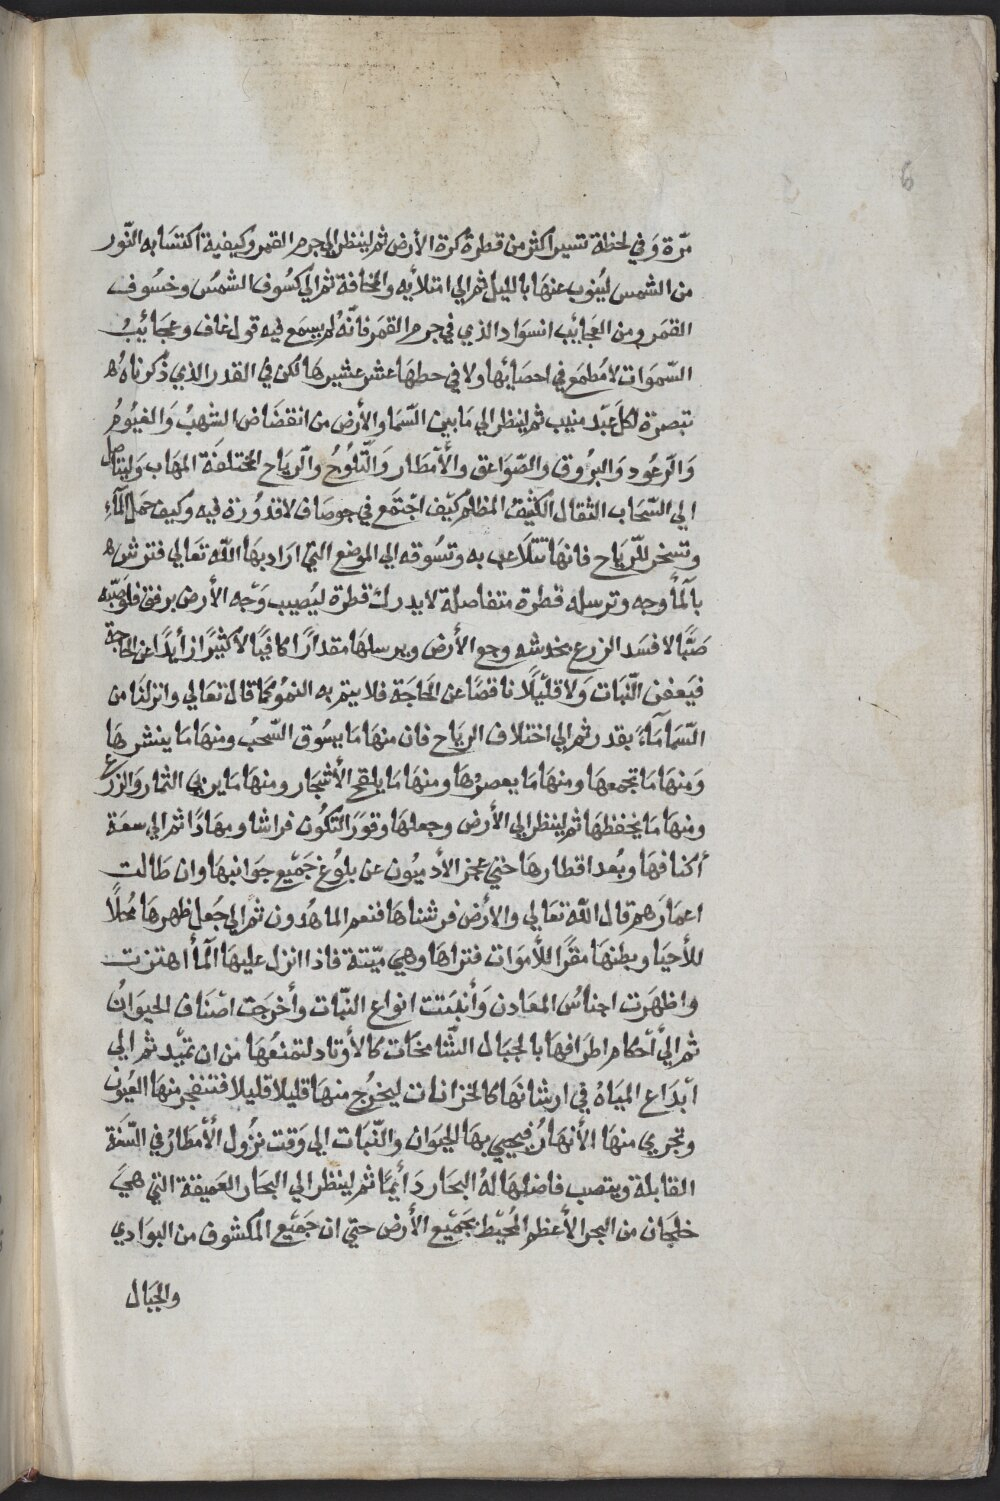 6
مرّة وَفي لحظة تسير اكثر من قطرة كرة الأرض ثم لينظر الي جرم القمر وكيفية اكتسَابه النّور
من الشمس ليَنوب عنهَا بالليل ثم الي امتلأيه والمخافة ثم الي كسُوف الشمسْ وخسُوف
القمَر ومن العجَائب انسوَاد الذي في جرم القمَر فانّه لم يسمَع فيه قول غاف وعجَائبُ
السّموَات لا مَطمَع في احصَايُها ولا في حطهَا عشر عشيرهَا لكن في القدر الذي ذكرناهُ
تبصرة لكل عَبْد منيب ثم لينظر الي مَا بين السّما والأرض من انقضَاض الشهبُ وَالغيُومُ
وَالرعُود وَالبرُوق والصّوَاعق والأمطَار وَالثّلوُجُ والرّيَاح المختلفَة المهَاب وَليتامل
الي السّحَاب الثقال الكثيف المظلم كيْف اجْتمَع في جو صَاف لا قدوُرة فيه وكيف حمَل المآء
وتسخر للرّيَاح فانهَا تتلَاعب به وتسُوقه الي الموضع التي ارَاد بهَا الله تعَالي فترشه
بالمأ وجه وترسله قطرة متفاصلة لا يدرك قطرة ليُصيب وَجْه الأرض برفق فلو صَبّه
صَبًّا لافسَد الزرع بخدشه وجو الأرض ويرسلهَا مقدارًا كافيًا لا كثيرًا زأيدًا عن الحاجة
فيَعفن النّبَات وَلا قليْلاً ناقصًا عن الحَاجَة فلا يتم به النموُ كمَا قال تعَالي وانزلنَا من
السّمَا مَآءً بقدر ثم الي اختلاف الريَاح فان منهَا مَا يسُوق السّحُب ومنهَا مَا ينشرهَا
وَمنهَا مَا تجمعهَا ومنهَا مَا يعصرُهَا ومنهَا مَا يلقح الأشجَار ومنهَا مَا يربي الثمار وَالزرع
ومنهَا مَا يخفظهَا ثم لينظر الي الأرض وجعلهَا وقورًا لتكُون فراشا ومهَادًا ثم الي سعَة
أكنافهَا وبُعد اقطارهَا حتي عجز الأدميُون عن بلوُغ جَميْع جوَانبهَا وان طَالت
اعمَارَهم قال الله تعَالي والأرْض فرشناهَا فنعم الماهدُون ثم الي جَعل ظهرهَا مَحلاً
للأحيَا وبطنهَا مقرًا للأموَات فترَاهَا وهي ميّتة فاذا انزل عليهَا المأ اهتزت
واظهَرت اجنَاسُ المعَادن وَأنبَتت انواع النبّات وأخرجَت اصْنَاف الحيوَانُ
ثم الي أحكام اطرَافهَا بالجبَال الشّامخَات كالأوتاد لتمنعُهَا من ان تميْد ثم الي
ابْدَاع الميَاهُ في ارشانهَا كالخزانات ليخرُج منهَا قليلا قليلا فتنفجر منهَا العيُون
وتجري منهَا الأنهَارُ فيحيي بهَا الحيوَان والنّبَات الي وَقت نزُول الأمطَارُ في السّنَة
القابلة ويتصب فاضلهَا لهُ البحَار دَأيمًا ثم لينظر الي البحَار العَميقة التي هيَ
خلجَان من البحر الأعظم المُحيْط بجَميْع الأرض حتي ان جَميْع المكشوف من البوَادي
والجبَال